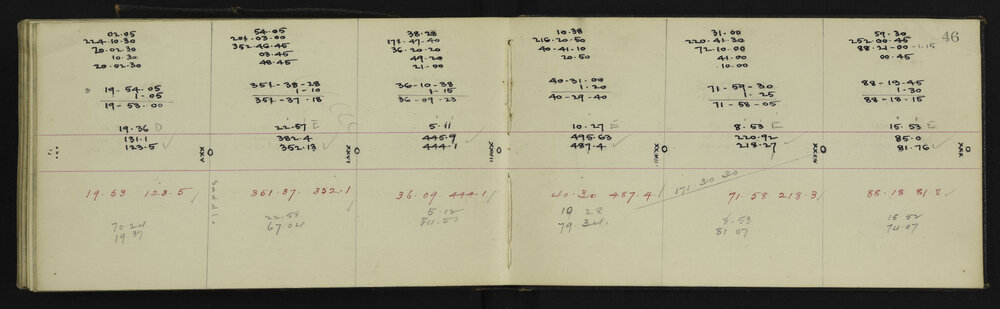 46
02.05
224.10.30
70.02.30
10.30
20.02.30
19-54.05
1-05
19-53.00
19.36 D
131.1
123.5
XXV
19.53 123.5
70.24
19.37
54.05
201.03.00
352.46.45
03.45
48.45
351-38-28
1-10
351-37-18
22.57 E
382.4
352.13
XXVI
351.37. 352.1
22.58
67.04
38.28
171.47.40
36.20.20
49.20
21.00
36-10-38
1-15
36-09-23
5.11
445.9
444.1
XXVII
36.09 444.1
5.12
10.38
216.20.50
40.41.10
20.50
40.31.00
1.20
40.29.40
10.27 E
495.63
487.4
XXVIII
40.30 487.4
10 28
79.34
31.00
220.41.30
72.10.00
41.00
10.00
71-59-30
1.25
71-58-05
8.53 E
220.92
218.27
XXIX
171.30 30
71.58 218.3
8.53
81 07
59.30
252.00.45
88-21-00-1.15
00.45
88-19-45
1-30
88-18-15
15.53 E
85.0
81.76
XXX
88.18 81.8
15 52
74.07